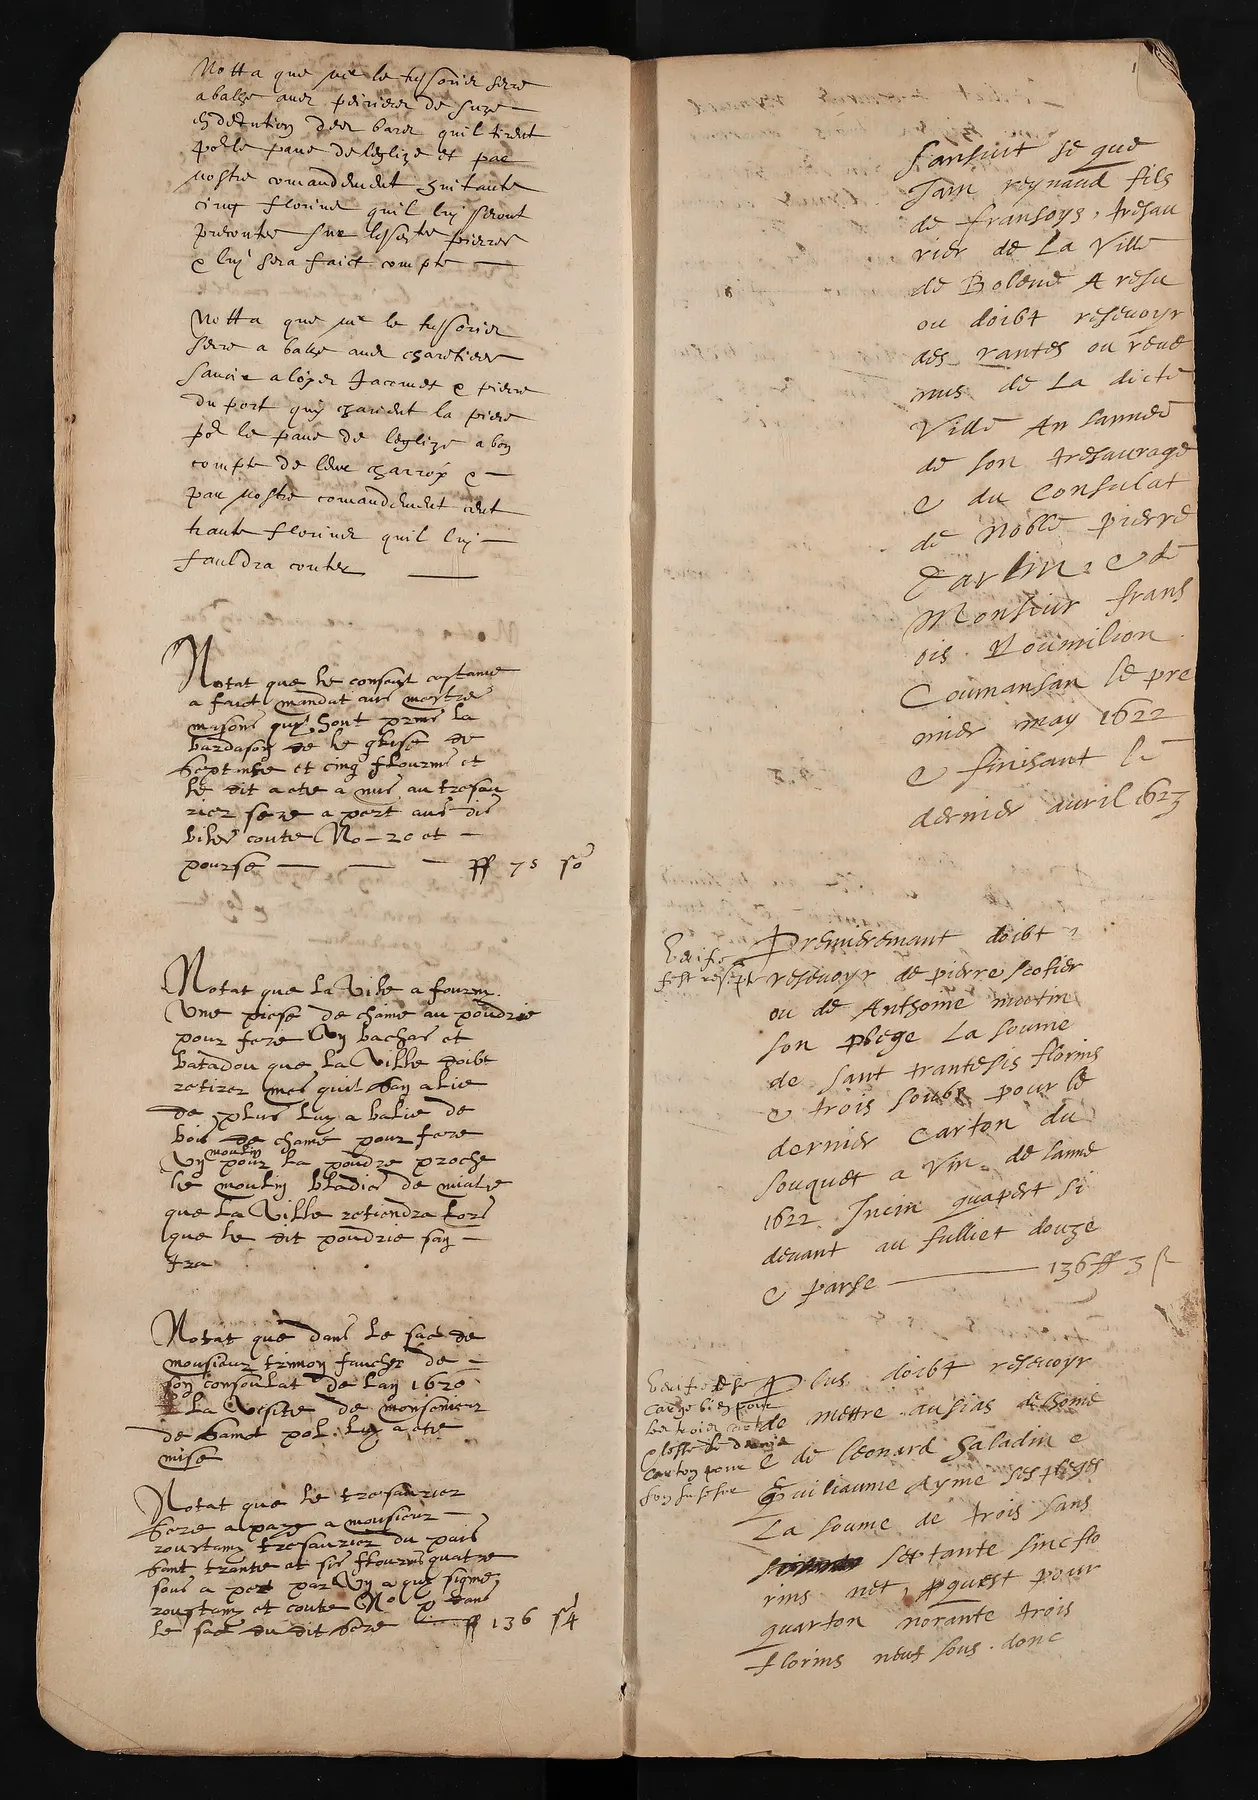 Notta que me le tressorier serre
a balhe aux peiriers de Suze
en dedution des bares quil tirent
por le pave de leglize et par
nostre comandement huitante
cinq florins quil luy seront
precontes sur les pierres
e luy sera faict compte
Notta que me le tressorier
serre a balhe aux charetiers
Jacomes e pierre
du port quy charient la piere
por le pave de leglize a bon
compte de leur charroy e
par nostre comandement cent
trante florins quil luy
fauldra conter
Notat que le consoul costame
a faict mandat aus mestre
masons quy hont prins la
bardason de le glise de
septante et cinq flourins et
le dit a ete a mis au tresau
rier sere a pert aus dis
biles coute No 20 et
pourse ff 75 so
Notat que la Ville a fourni
Une piese de chaine au poudrie
pour fere Un bachas et
batadou que la Ville doibt
retirer mes quil san alie
de plus luy a balie de
bois de chaine pour fere
Un moulin pour la poudre proche
le moulin bladier de
que la Ville retiendra lors
que le dit poudrie san
tra
Notat que dans le sac de
monsieur trimon faucher de
son consoulat de lan 1620
La Visite de monsenieur
de Samt pol luy a ete
mise
Notat que le tresaurier
sere a paye a monsieur
roustang tresaurier du pais
sant trante et sis flourins quatre
sous a pert par Un a quy signe
roustang et coute No p dans
le sac du dit sere ff 136 s 4
1
Sansuit se que
Jain reynaud fils
de fransoys, tresau
rier de La Ville
de Bolene A resu
ou doibt resevoyr
des rantes ou reve
nus de La dicte
Ville An lannee
de son tresaurage
e du Consulat
de Noble pierre
Carlin e de
Monsieur frans
ois Roumilion
Coumansan le pre
mier may 1622
e finisant le
dernier avril 1623
Premieremant doibt
resevoyr de pierre scofier
ou de Anthoine martin
son plege La soume
de sant trantesis florins
e trois soubs pour le
dernier carton du
souquet a Vin de lanne
1622 Incin quapert si
devant au fulliet douze
e parse 136 ff 3 s
Plus doibt resevoyr
de mettre ausias
e de leonard saladin e
Guiliaume Ayme ses pleges
La soume de trois sans
septante sinc flo
rins net, quest pour
quarton norante trois
florins neuf sous donc